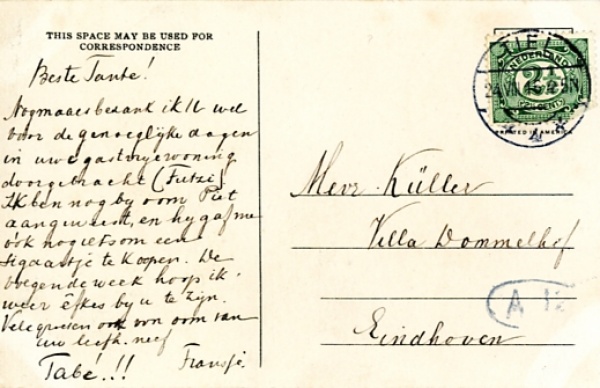 THIS SPACE MAY BE USED FOR
CORRESPONDENCE
Beste Tante!
Nogmaals bedank ik U wel
voor de genoeglijke dagen
in uwe gastvrije woning
doorgebracht (Futzi)
Ik ben nog by oom Piet
aangeweest, en hy gaf me
óók nog iets om een
sigaartje te koopen. De
volgende week hoop ik
weer êfkes by u te zijn.
Vele groeten ook von oom van
uw liefh. neef
Fransje.
Tabé!!!
TIEL
NEDERLAND
2½
24 VII 15 12.5N
CENT
PRINTED IN AMERICA
Mevr. Küller
Villa Dommelhof
Eindhoven
A 12